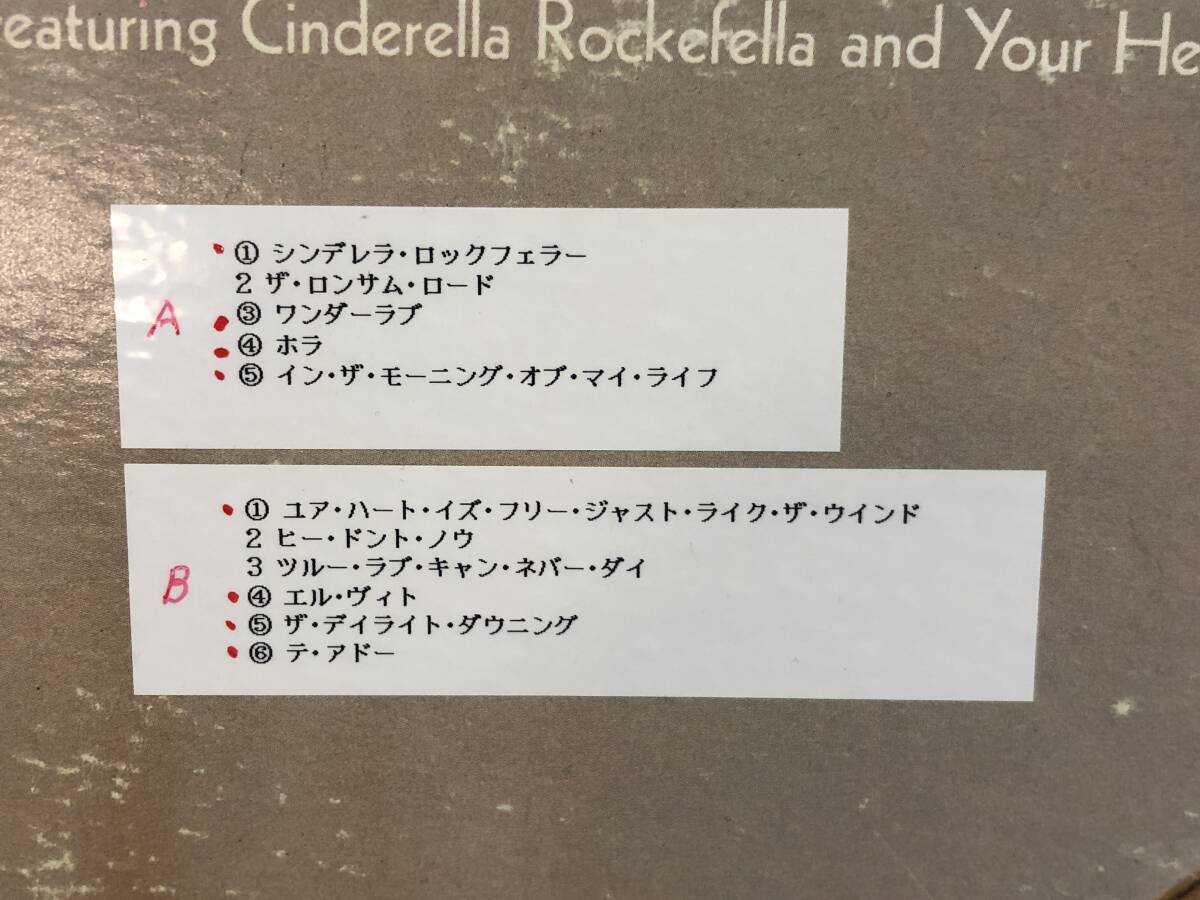 eaturing Cinderella Rockefella and Your He
① シンデレラ・ロックフェラー
2 ザ・ロンサム・ロード
A
③ ワンダーラブ
④ ホラ
⑤ イン・ザ・モーニング・オブ・マイ・ライフ
① ユア・ハート・イズ・フリー・ジャスト・ライク・ザ・ウインド
2 ヒー・ドント・ノウ
3 ツルー・ラブ・キャン・ネバー・ダイ
B
④ エル・ヴィト
⑤ ザ・デイライト・ダウニング
⑥ テ・アドー